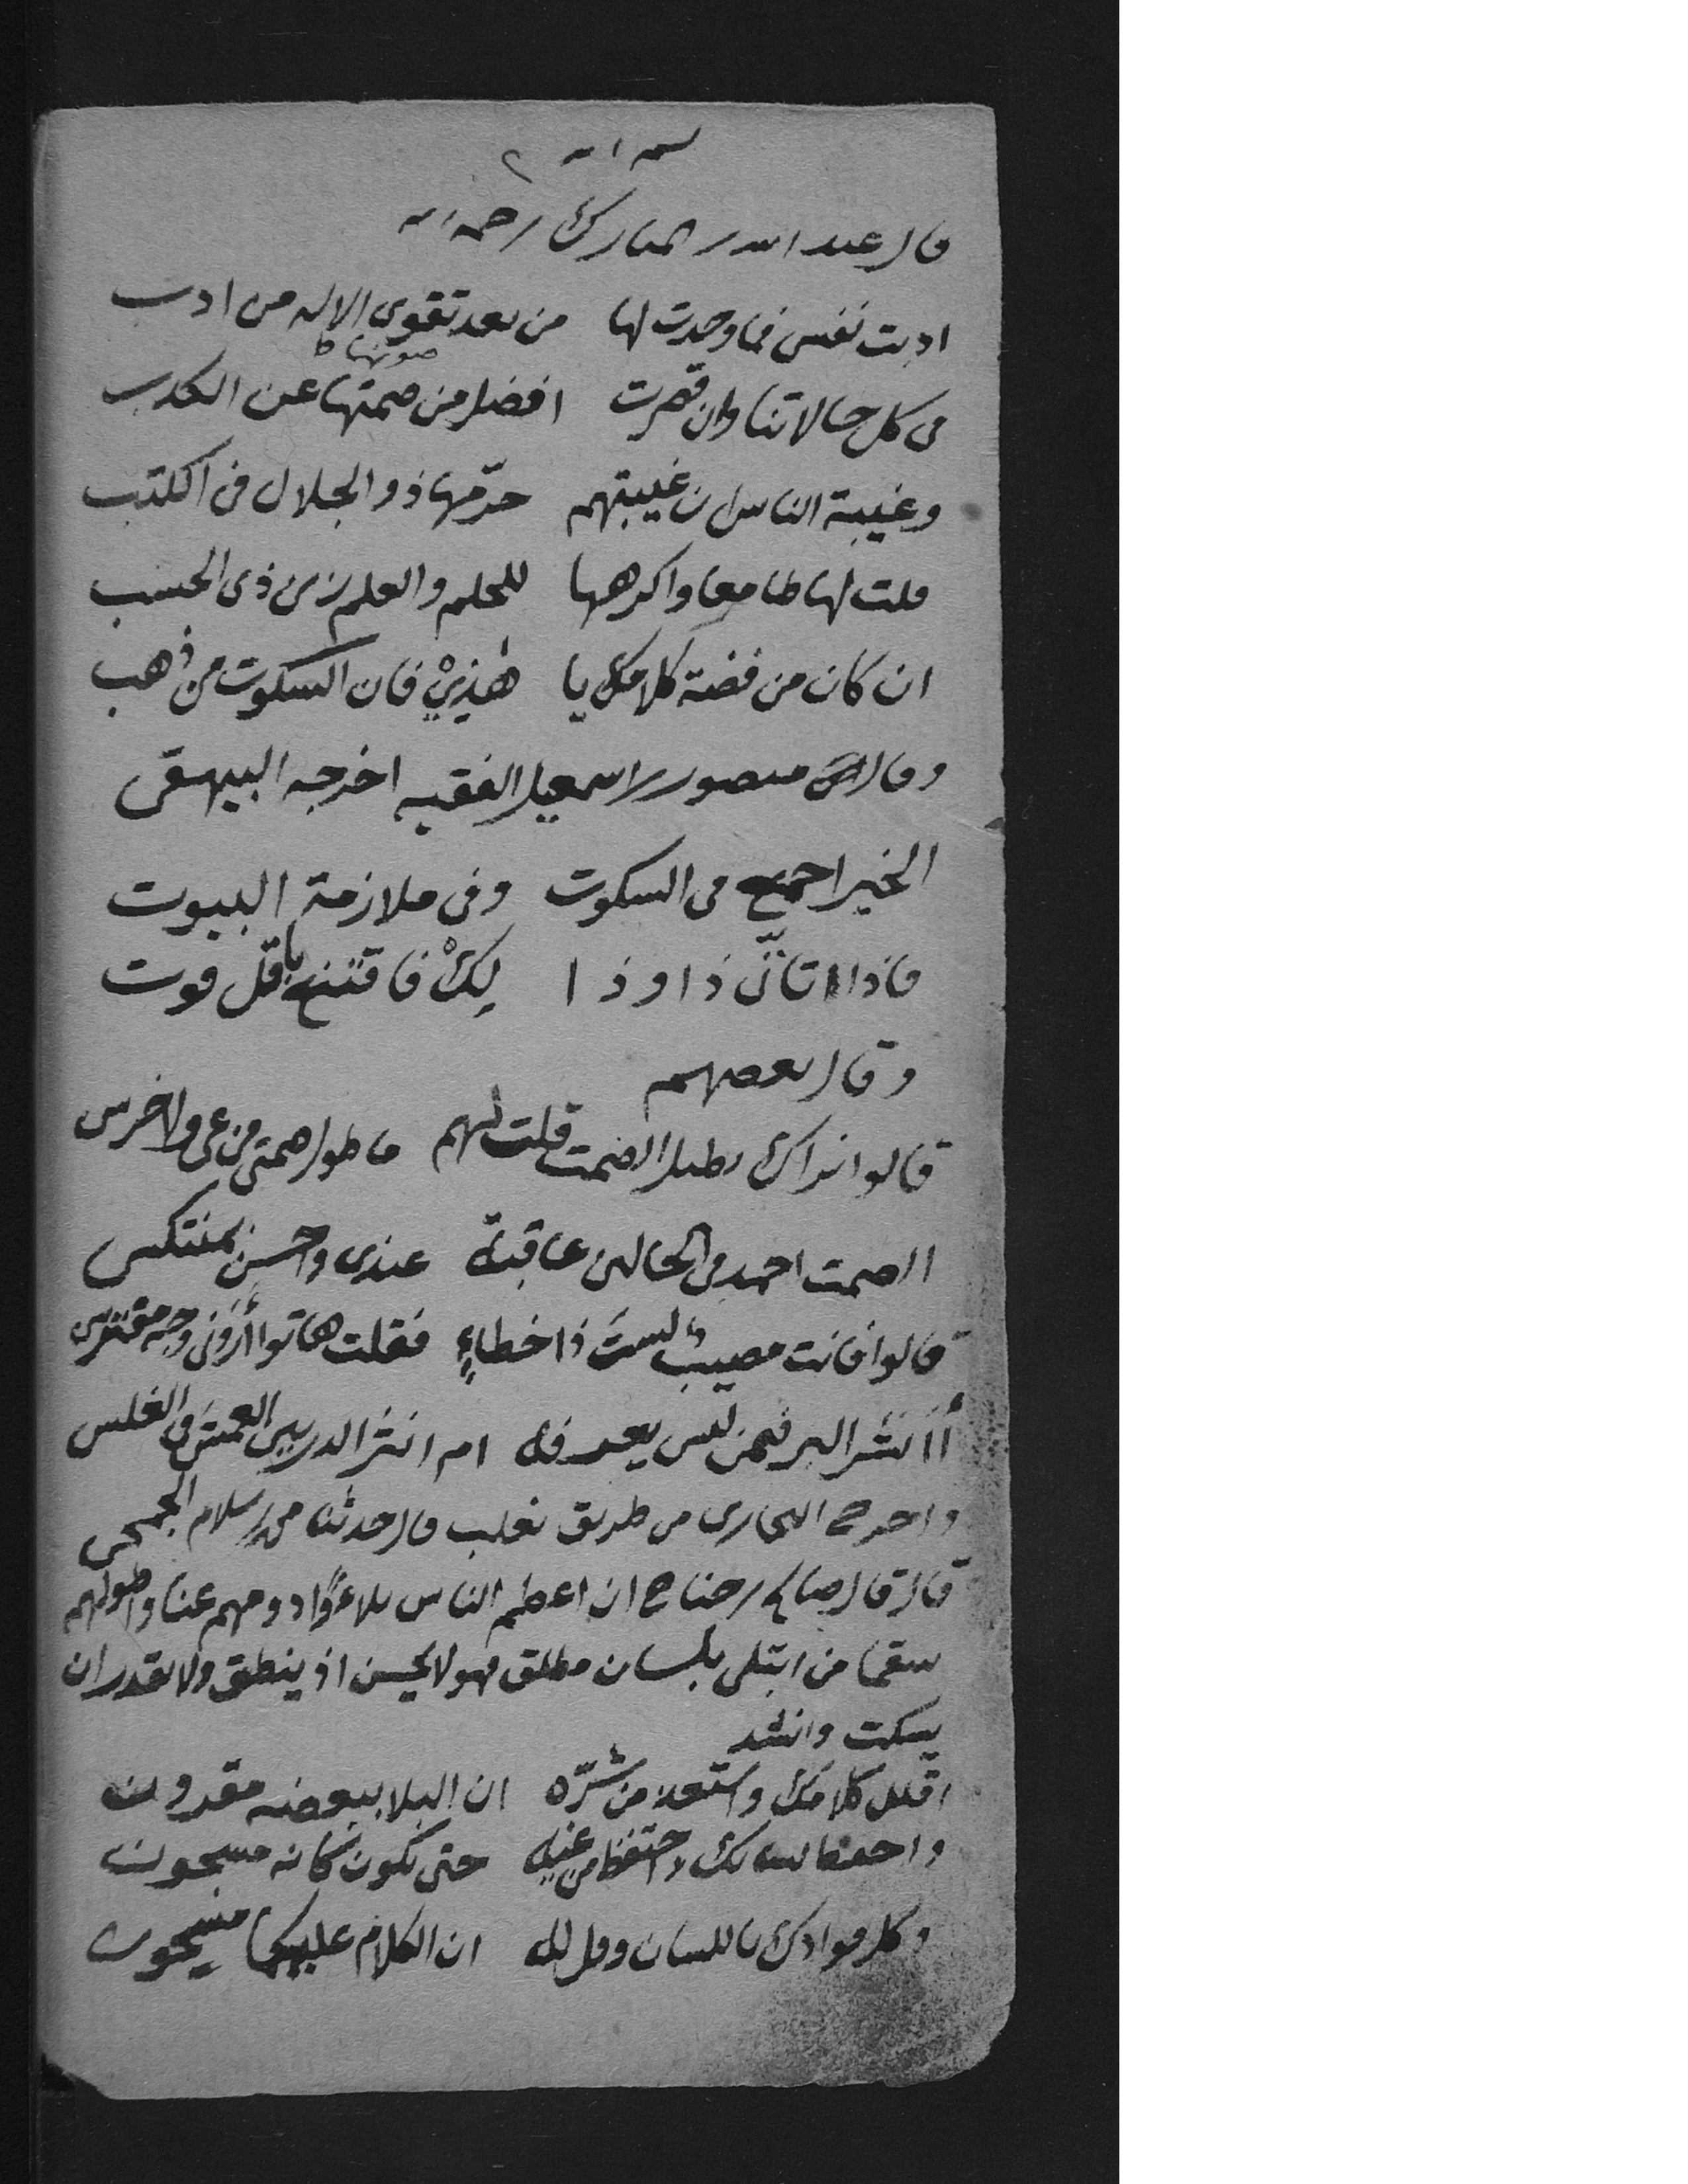 قال عبد الله بن المبارك رحمه الله
ادبت نفسى فما وجدت لها من بعد تقوى الاله من ادب
صونها
فى كل حالاتنا وان قصرت افضل من صمتها عن الكذب
وغيبة الناس ان غيبتهم حرّمها ذو الجلال فى الكتب
قلت لها طامعا واكرهها للحلم والعلم زين ذى الحسب
ان كان من فضة كلامك يا هٰذِىْ فان السكوت من ذهب
وقال منصور بن اسمعيل الفقيه اخرجه البيهقى
الخير اجمع فى السكوت وفى ملازمة البيوت
فاذا اتأتّى ذا وذا لكْ فاقتنع باقل قوت
وقال بعضهم
قالوا نراك تطيل الصمت قلت لهم ما طول صمتى من عى ولا خرس
الصمت احمد فى الحالين عاقبة عندى واحسن بمنتكس
قالوا فانت مصيب لستَ ذا خطاءٍ فقلت هاتوا أرونى وجه مقتبس
أأنشر البر فيمن ليس يعرفه ام انثر الدر بين العمى فى الغلس
واخرج البخارى من طريق ثعلب قال حدثنا بن سلام الجمحى
قال قال صالح بن جناح ان اعظم الناس بلاءً وادومهم عنا واطولهم
سقما من ابتلى بلسان مطلق فهو لا يحسن اذ ينطق ولا يقدر ان
يسكت وانشد
اقلل كلامك واستعذ من شرّه ان البلا ببعضه مقرون
واحفظ لسانك واحتفظ من غيه حتى يكون كانه مسجون
وكل فوادك باللسان وقل له ان الكلام عليكما